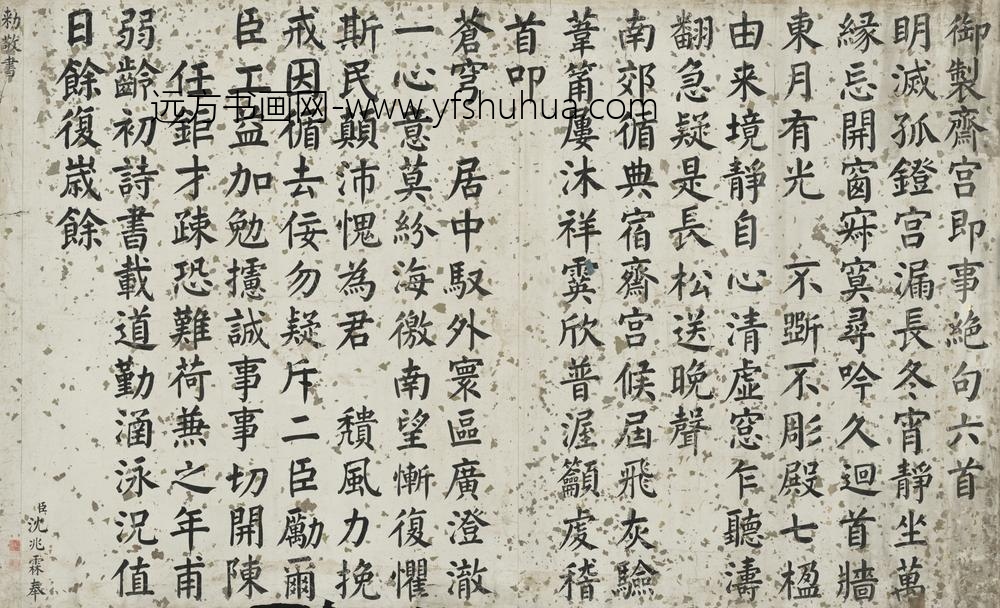 御製齋宮即事絶句六首
眀滅孤鐙宮漏長冬宵靜坐萬
緣忘開窗寂寞尋吟久迴首牆
東月有光　不斲不彫殿七楹
由来境靜自心清虛窓乍聽濤
翻急疑是長松送晚聲
南郊循典宿齋宮候屆飛灰驗
葦筩屢沐祥霙欣普渥籲虔稽
首叩
蒼穹　居中馭外寰區廣澄澈
一心意莫紛海徼南望慚復懼
斯民顛沛愧為君　穨風力挽
戒因循去佞勿疑斥二臣勵爾
臣工益加勉攄誠事事切開陳
任鉅才疎恐難荷兼之年甫
弱齡初詩書載道勤涵泳況值
日餘復嵗餘
臣沈兆霖奉
勅敬書
远方书画网-www.yfshuhua.com